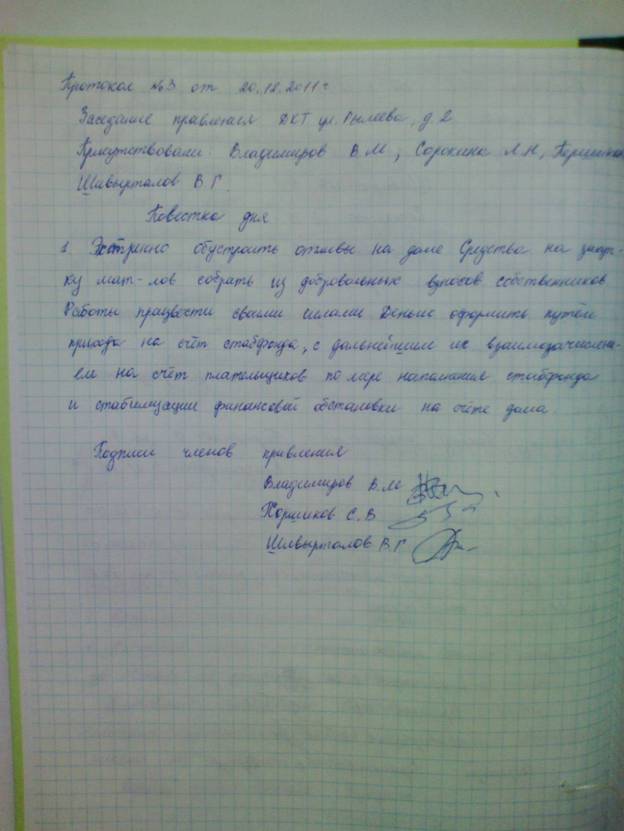 Протокол №3 от 20.12.2011г
Заседание правления ДКТ ул. Рылеева, д 2
Присутствовали Владимиров В.М, Сорокина Л.Н,
Шивырталов В.Г.
Повестка дня
1. Экстренно обустроить отливы на доме Средства на закуп-
ку мат-лов собрать из добровольных взносов собственников
Работы произвести своими силами Деньги оформить путём
прихода на счёт стабфонда, с дальнейшим их взаимозачислени-
ем на счёт плательщиков по мере наполнения стабфонда
и стабилизации финансовой обстановки на счёте дома
Подписи членов правления
Владимиров В.М
Поршиков С.В
Шивырталов В.Г